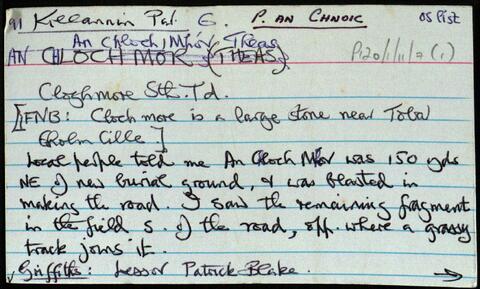 91 Killannin Psh. G. P. AN CHNOIC OS list
An Chloch Mhór Theas
AN CHLOCH MOR (THEAS) P120/1/11/2 (1)
Cloghmore Sth. Td.
[FNB: Clochmore is a large stone near Tobar
Cholm Cille]
Local people told me An Chloch Mhór was 150 yds
NE of new burial ground, & was blasted in
making the road. I saw the remaining fragment
in the field S. of the road, opp. where a grassy
track joins it.
Griffiths: Lessor Patrick Blake. →